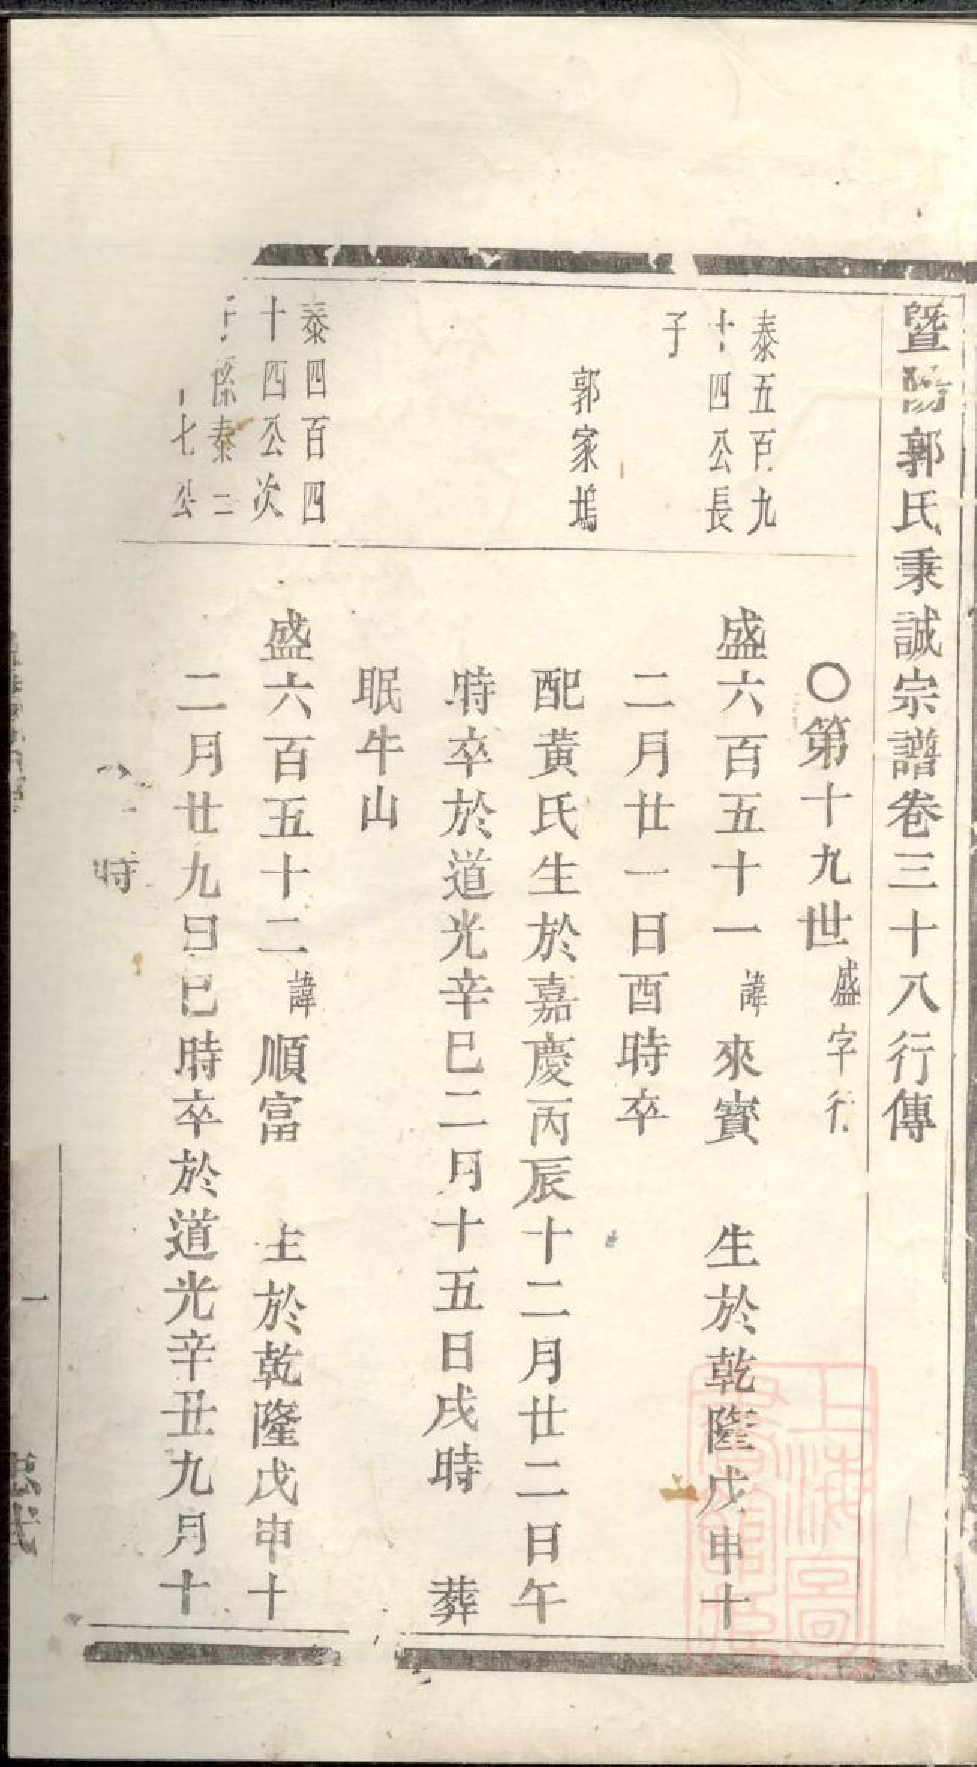 暨陽郭氏秉誠宗譜卷三十八行傳
〇第十九世盛字行
泰五百九
十四公長
子
盛六百五十一諱來寳 生於乾隆戊申十
二月廿一日酉時卒
郭家塢
配黃氏生於嘉慶丙辰十二月廿二日午
時卒於道光辛巳二月十五日戌時 葬
眠牛山
泰四百四
十四公次
子係泰二
七公
盛六百五十二諱順富 生於乾隆戊申十
二月廿九日巳時卒於道光辛丑九月十
時
一
上海圖
書館藏